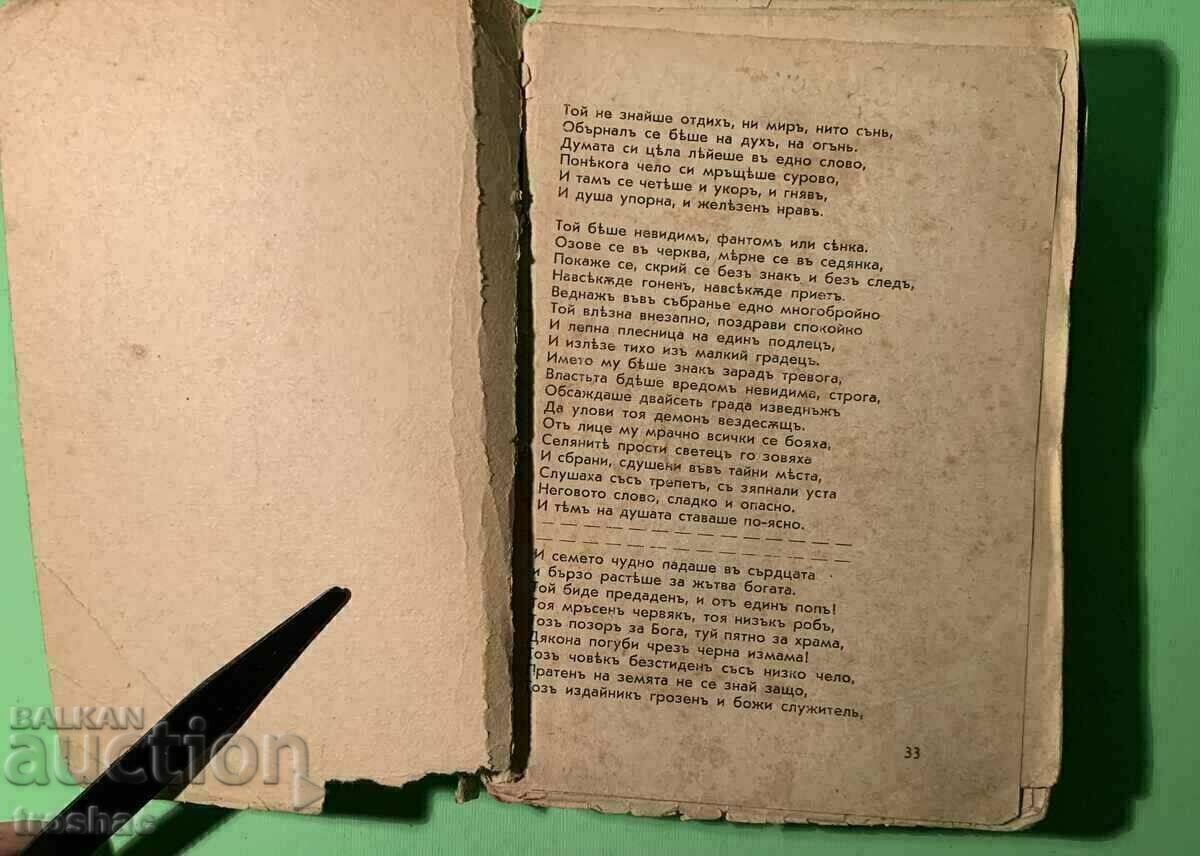 Той не знайше отдихъ, ни миръ, нито сънь,
Обърналъ се бѣше на духъ, на огънь.
Думата си цѣла лѣйеше въ едно слово,
Понѣкога чело си мръщѣше сурово,
И тамъ се четѣше и укоръ, и гнявъ,
И душа упорна, и желѣзенъ нравъ.
Той бѣше невидимъ, фантомъ или сѣнка.
Озове се въ черква, мѣрне се въ седянка,
Покаже се, скрий се безъ знакъ и безъ следъ,
Навсѣкѫде гоненъ, навсѣкѫде приетъ.
Веднажъ въвъ събранье едно многобройно
Той влѣзна внезапно, поздрави спокойно
И лепна плесница на единъ подлецъ,
И излѣзе тихо изъ малкий градецъ.
Името му бѣше знакъ зарадъ тревога,
Властьта бдѣше вредомъ невидима, строга,
Обсаждаше двайсеть града изведнъжъ
Да улови тоя демонъ вездесѫщъ.
Отъ лице му мрачно всички се бояха,
Селянитѣ прости светецъ го зовяха
И сбрани, сдушени въвъ тайни мѣста,
Слушаха със­ъ трепетъ, съ зяпнали уста
Неговото слово, сладко и опасно.
И тѣмъ на душата ставаше по-ясно.
И семето чудно падаше въ сърдцата
и бързо растѣше за жътва богата.
Той биде предаденъ, и отъ единъ попъ!
Тоя мръсенъ червякъ, тоя низъкъ робъ,
Тозъ позоръ за Бога, туй пятно за храма,
Дякона погуби чрезъ черна измама!
Тозъ човѣкъ безстиденъ съсъ низко чело,
Пратенъ на земята не се знай защо,
Тозъ издайникъ грозенъ и божи служитель,
33
BALKAN
auction
troshac